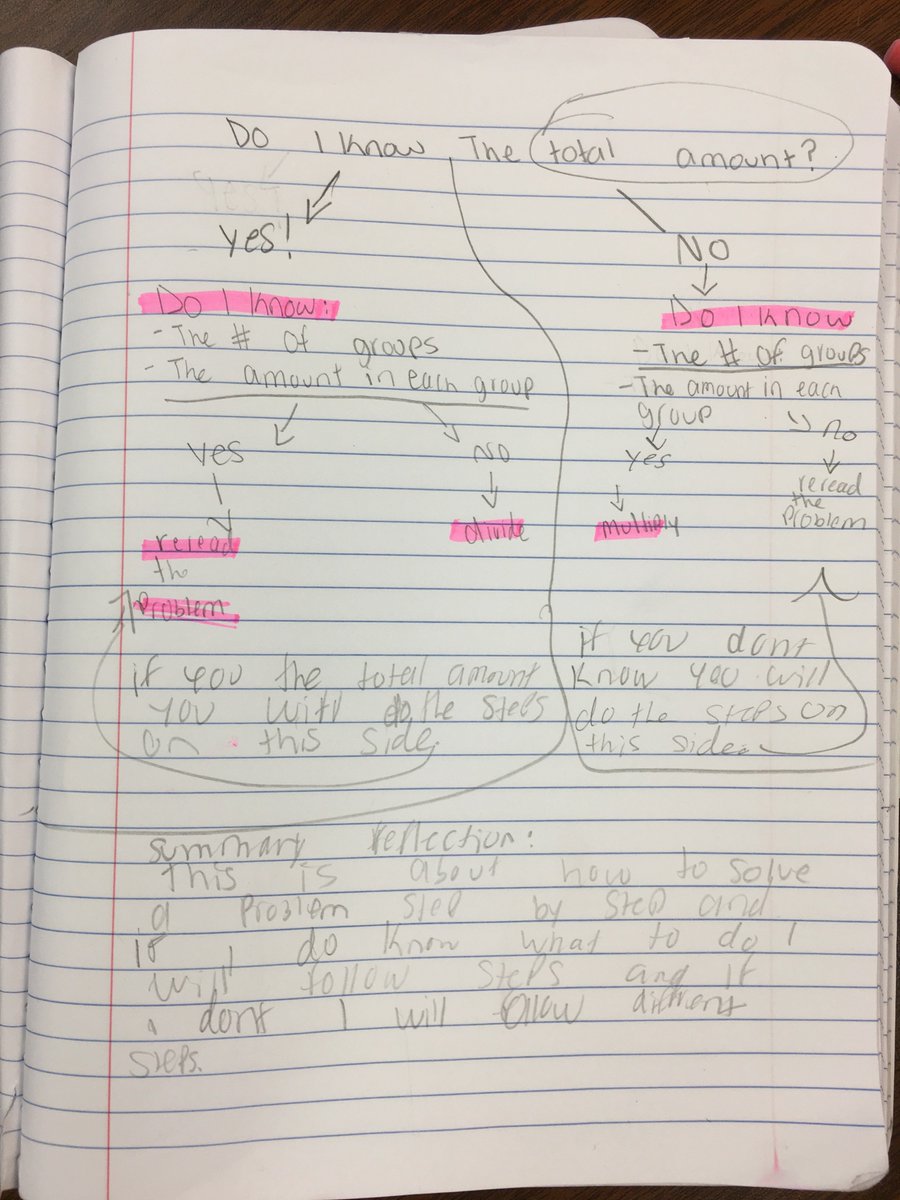 Do I Know The total amount?
yes!
Do I Know:
- The # of groups
- The amount in each group
yes
reread
the
problem
NO
divide
if you the total amount
you will do the steps
on this side.
NO
Do I Know
- The # of groups
- The amount in each
group
yes
multiply
no
reread
the
problem
if you dont
know you will
do the steps on
this side.
summary reflection:
This is about how to solve
a problem step by step and
if I do know what to do I
will follow steps and if
I dont I will follow
steps.